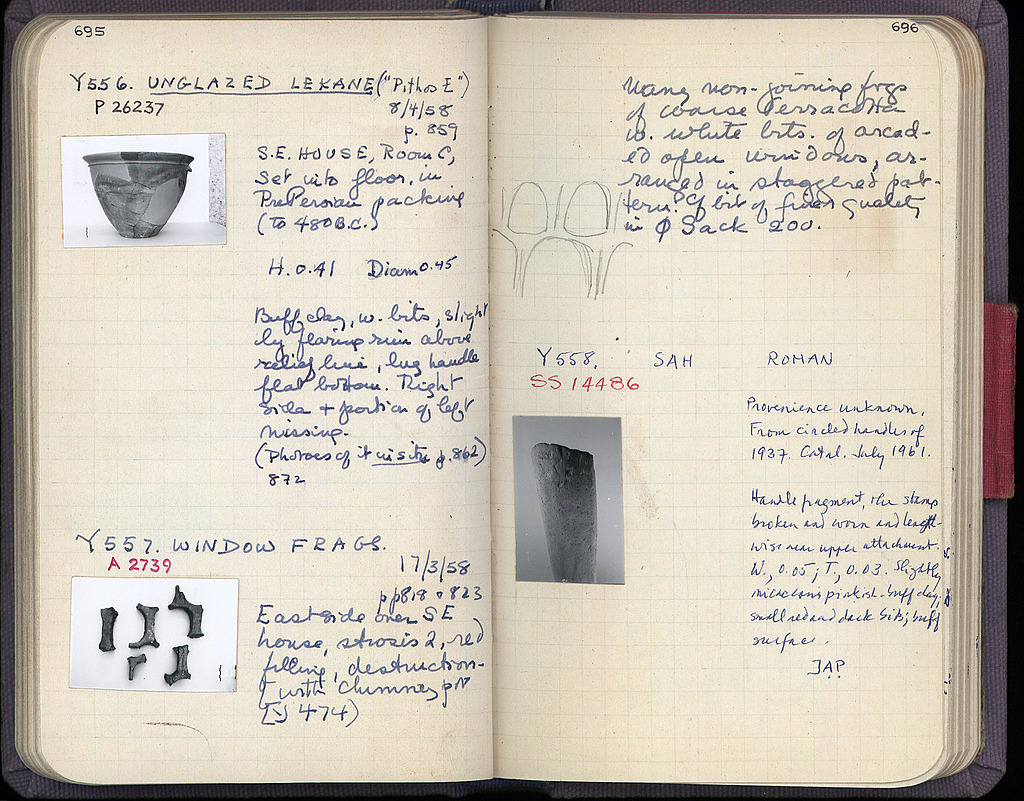 695
Y556. UNGLAZED LEKANE ("Pithos E")
P 26237
8/4/58
p. 859
S.E. HOUSE, Room C,
Set into floor, in
PrePersian packing
(to 480 B.C.)
H. 0.41 Diam 0.45
Buff clay, w. bits, slight
ly flaring rim above
relief line, lug handle
flat bottom. Right
side + portion of left
missing.
(Photoes of it in situ p. 862)
872
Y557. WINDOW FRAGS.
A 2739
17/3/58
pp 818 + 823
East side over SE
house, strosis 2, red
filling, destruction-
with chimney pot
(Y 474)
696
Many non-joining frags
of coarse terracotta
w. white bits. of arcad-
ed open windows, ar-
ranged in staggered pat-
tern. Cf bit of fixed quality
in φ Sack 200.
Y558. SAH ROMAN
SS 14486
Provenience unknown.
From circled handles of
1937. Catal. July 1961.
Handle fragment, the stamp
broken and worn and length-
wise near upper attachment.
W., 0.05; T., 0.03. Slightly
micaceous pinkish-buff clay;
small red and dark bits; buff
surface.
JAP